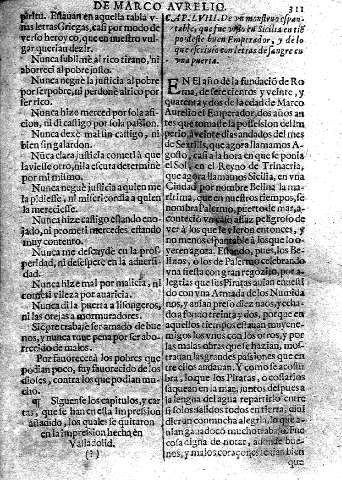 DE MARCO AVRELIO. 311
piritu. Estauan en aquella tabla v-
nas letras Griegas, casi por modo de
verso heroyco, que en nuestro vul-
gar querian dezir.
Nunca sublimè al rico tirano, ni
aborreci al pobre justo.
Nunca neguè la justicia al pobre
por ser pobre, ni perdonè al rico por
ser rico.
Nunca hize merced por sola afi-
cion, ni di castigo por sola passion.
Nunca dexè mal sin castigo, ni
bien sin galardon.
Nunca clara justicia cometi à que
la viesse otro, ni la escura determinè
por mi mismo.
Nunca neguè justicia a quien me
la pidiesse, ni misericordia a quien
la mereciesse.
Nunca hize castigo estando eno-
jado, ni prometì mercedes estando
muy contento.
Nunca me descuyde en la pros-
peridad, ni desesperè en la aduersi-
dad.
Nunca hize mal por malicia, ni
cometì vileza por auaricia.
Nunca di la puerta a lisongeros,
ni las orejas a mormuradores.
Siẽpre trabajè ser amado de bue-
nos, y nunca tuue pena por ser abor-
recido de malos.
Por fauorecer a los pobres que
podian poco, fuy fauorecido de los
dioses, contra los que podian mu-
cho.
¶ Siguense los capitulos, y car-
tas, que se han en esta impression
añadido, los quales se quitaron
en la impression hecha en
Valladolid.
(?)
CAP. LVIII. De vn monstruo espan-
table, que fue visto en Sicilia en tiẽ-
po deste buen Emperador, y de lo
que escriuio con letras de sangre en
vna puerta.
EN El año de la fundacion de Ro-
ma, de setecientos y veinte, y
quarenta y dos de la edad de Marco
Aurelio el Emperador, dos años an-
tes que tomasse la possession del Im-
perio, a veinte dias andados del mes
de Sextilis, que agora llamamos A-
gosto, casi a la hora en que se ponia
el Sol, en el Reyno de Trinacria,
que agora llamamos Sicilia, en vna
Ciudad por nombre Belina la ma-
ritima, que en nuestros tiempos, se
nombra Palermo, puerto de mar, a-
conteciò vn caso assaz peligroso de
ver à los que le vieron entonces, y
no menos espantable à los que lo o-
yeren agora. Estando, pues, los Be-
linos, o los de Palermo celebrando
vna fiesta con gran regozijo, por a-
legrias que los Piratas auian encuẽ-
tra do con vna Armada de los Numida-
nos, y assi an preso diez naos, y echa-
da a fondo treinta y dos, porque en
aquellos tiempos estauan muy ene-
migos los vnos con los otros, y por
las malas obras que se hazian, mos-
trauan las grandes passiones que en-
tre ellos auian. Y como se acostum-
bra, lo que los Piratas, o cossarios
saquean en la mar, juntos despues a
la lengua del agua repartirlo entre
si solos salidos todos en tierra, diui-
dieron con mucha alegria, lo que a-
uian ganado con mucho trabajo. Fue
cosa digna de notar, adonde bue-
nos, y malos coraçones se auian bien
que